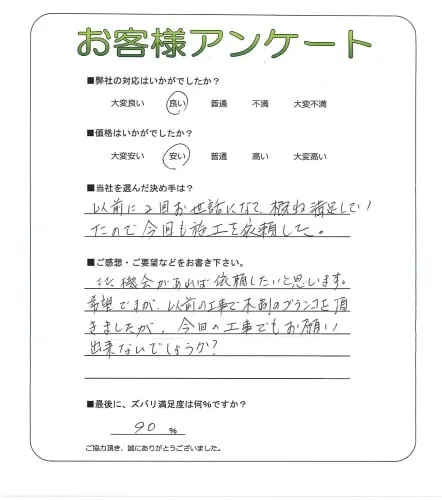 お客様アンケート
■弊社の対応はいかがでしたか？
大変良い 良い 普通 不満 大変不満
■価格はいかがでしたか？
大変安い 安い 普通 高い 大変高い
■当社を選んだ決め手は？
以前に2回お世話になて、概ね満足してい
たので今回も施工を依頼した。
■ご感想・ご要望などをお書き下さい。
また機会があれば依頼したいと思います。
希望ですが、以前の工事で木製のブランコを頂
きましたが、今回の工事でもお願い
出来ないでしょうか？
■最後に、ズバリ満足度は何%ですか？
90 %
ご協力頂き、誠にありがとうございました。